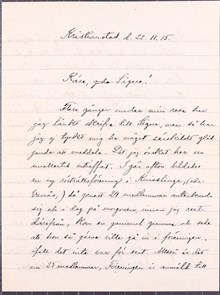 Kristianstad d. 22.11.15.
Kära, goda Signe!
Flere gånger under min resa har
jag tänkt skrifva till Signe, men så har
jag ej tyckt mig ha något särskildt gläd
jande att meddela. Det jag önskat har
emellertid inträffat. I går afton bildades
en ny rösträttsförening i
då genast 24 medlummar antecknade
sig och i dag på morgonen, innan jag reste
därifrån, kom en gammal gumma ut och sade
att hon så gärna ville gå in i föreningen,
fall det inte var för sent. Alltså är det
nu 25 medlummar. Föreningen är anmäld till